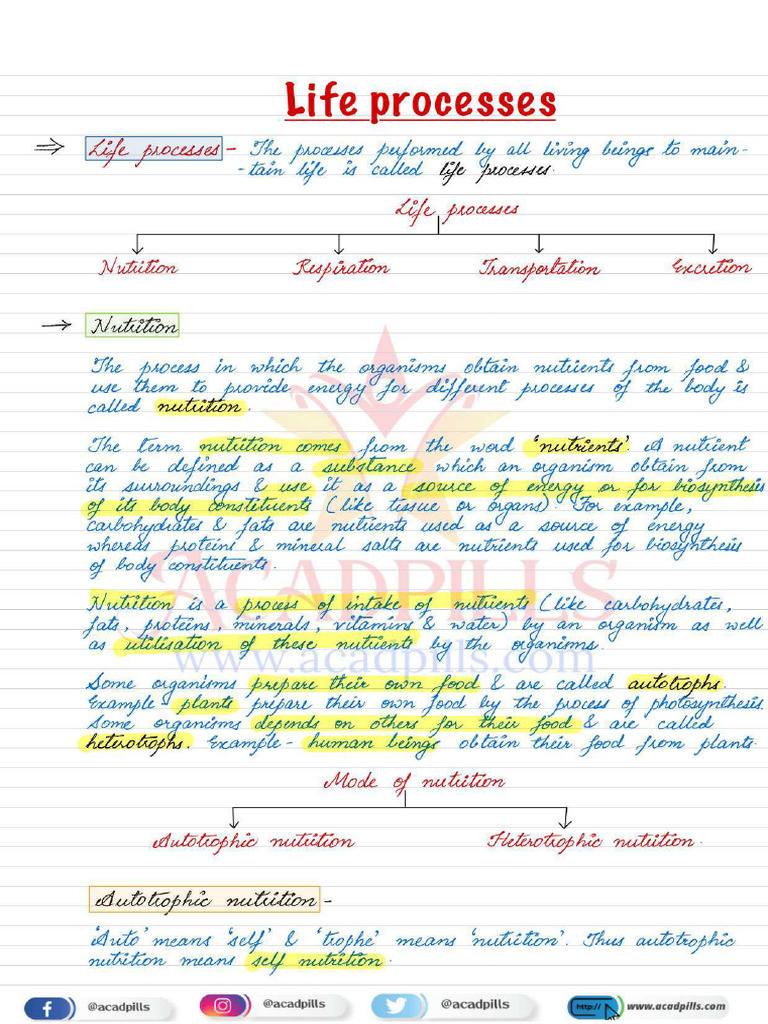 Life processes
⇒ Life processes - The processes performed by all living beings to main-
-tain life is called life processes.
Life processes
Nutrition Respiration Transportation Excretion
→ Nutrition
The process in which the organisms obtain nutrients from food &
use them to provide energy for different processes of the body is
called nutrition.
The term nutrition comes from the word 'nutrients'. A nutrient
can be defined as a substance which an organism obtain from
its surroundings & use it as a source of energy or for biosynthesis
of its body constituents (like tissue or organs). For example,
carbohydrates & fats are nutrients used as a source of energy
whereas proteins & mineral salts are nutrients used for biosynthesis
of body constituents.
ACADPILLS
Nutrition is a process of intake of nutrients (like carbohydrates,
fats, proteins, minerals, vitamins & water) by an organism as well
as utilisation of these nutrients by the organisms.
www.acadpills.com
Some organisms prepare their own food & are called autotrophs.
Example - plants prepare their own food by the process of photosynthesis.
Some organisms depends on others for their food & are called
heterotrophs. Example - human beings obtain their food from plants.
Mode of nutrition
Autotrophic nutrition Heterotrophic nutrition.
Autotrophic nutrition -
'Auto' means 'self' & 'trophe' means 'nutrition'. Thus autotrophic
nutrition means self nutrition.
@acadpills @acadpills @acadpills http:// www.acadpills.com